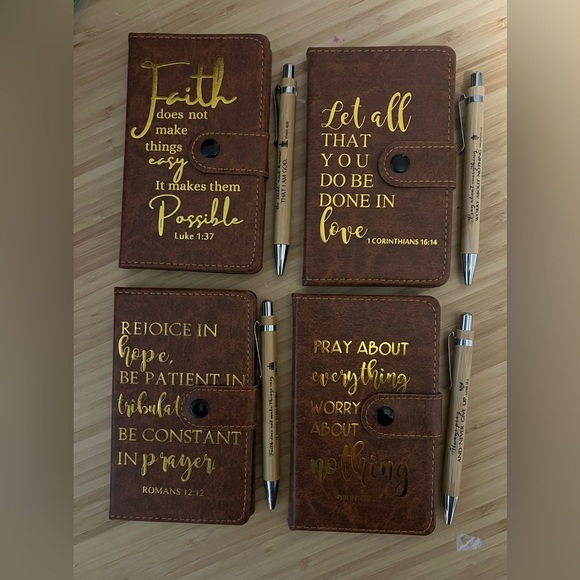 Faith
does not
make
things
easy
It makes them
Possible
Luke 1:37
THAT I AM GOD
Let all
THAT
YOU
DO BE
DONE IN
love
1 CORINTHIANS 16:14
Pray about everything
WORRY ABOUT NOTHING
REJOICE IN
hope,
BE PATIENT IN
tribulat
BE CONSTANT
IN prayer
ROMANS 12:12
Faith does not make things easy
PRAY ABOUT
everything
WORRY
ABOUT
nothing
Always pray
AND NEVER GIVE UP